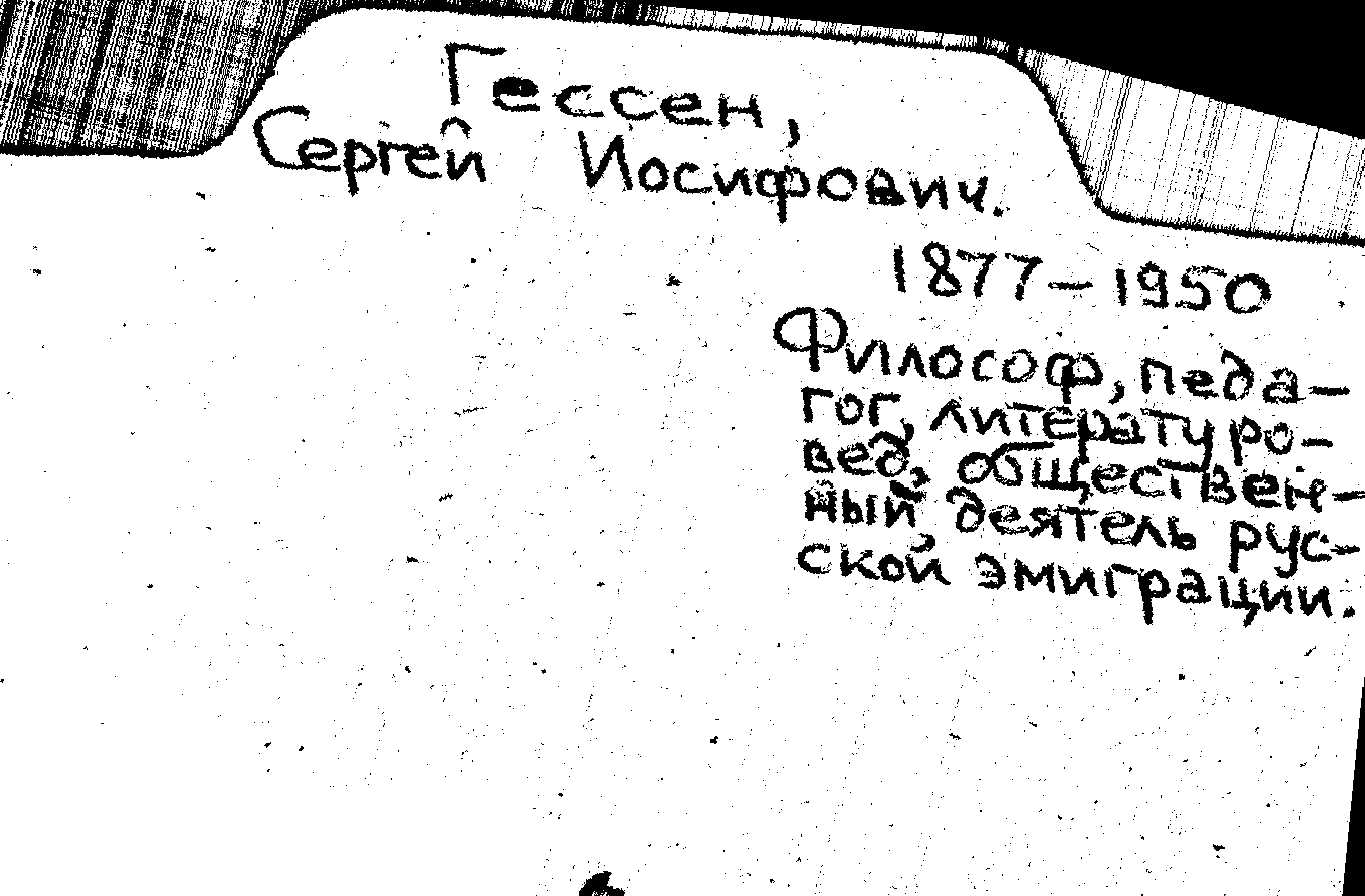 Гессен,
Сергей Иосифович.
1877-1950
Философ, педа-
гог, литературо-
вед, обществен-
ный деятель рус-
ской эмиграции.